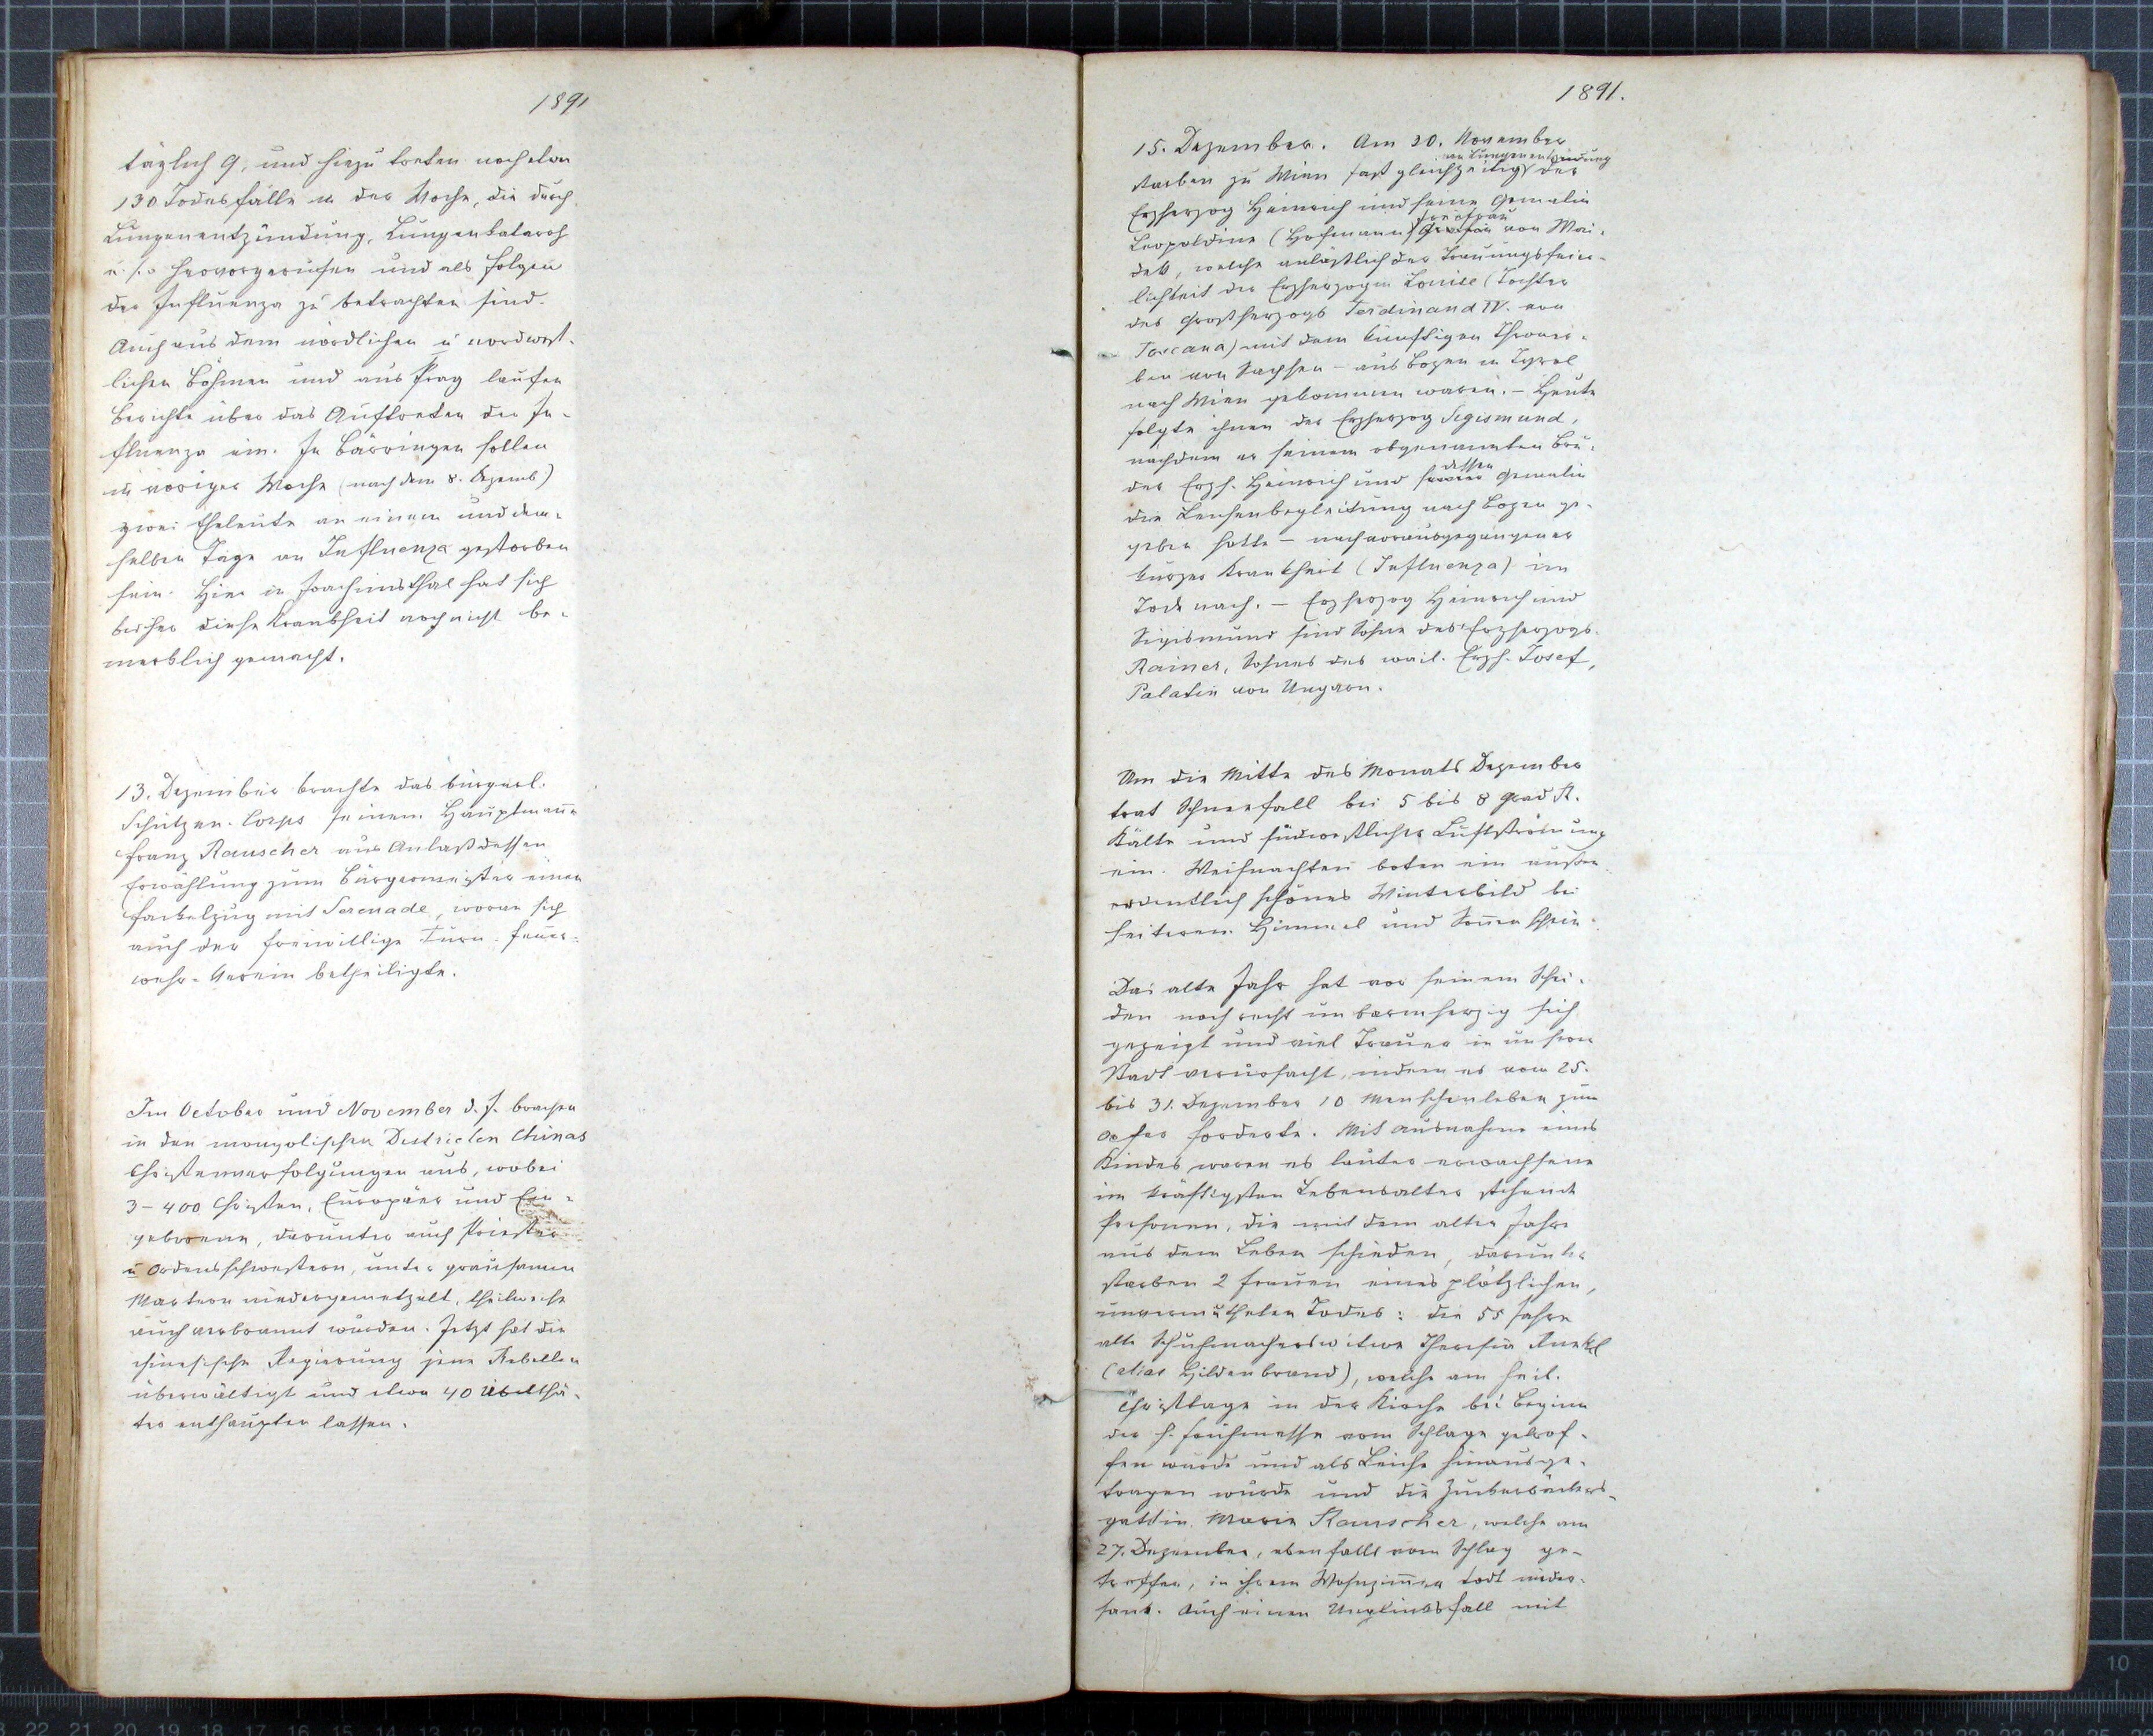 1891
täglich 9, und hiezu treten noch etwa
130 Todesfälle in der Woche, die durch
Lungenentzündung, Lungenkatarrh
u. s. hervorgerufen und als Folgen
der Influenza zu betrachten sind.
Auch aus dem nördlichen u nordwest-
lichen Böhmen und aus Prag laufen
Berichte über das Auftreten der In-
fluenza ein. In Bärringen sollen
in voriger Woche (nach dem 8. Dezemb)
zwei Eheleute an einem und dem-
selben Tage an Influenza gestorben
sein. Hier in Joachimsthal hat sich
bisher diese Krankheit noch nicht be-
merklich gemacht.
13. Dezember brachte das bürgerl.
Schützen-Corps seinem Hauptmann
Franz Rauscher aus Anlaß dessen
Erwählung zum Bürgermeister einen
Fackelzug mit Serenade, woran sich
auch der freiwillige Turn-Feuer-
wehr-Verein betheiligte.
Im October und November d. J. brachen
in den mongolischen Districten Chinas
Christenverfolgungen aus, wobei
3-400 Christen, Europäer und Ein-
geborene, darunter auch Priester
u Ordensschwestern, unter grausamen
Martern niedergemetzelt, theilweise
auch verbrannt wurden. Jetzt hat die
chinesische Regierung jene Rebellen
überwältigt und etwa 40 Übelthä-
ter enthaupten lassen.
1891.
15. Dezember. Am 30. November
an Lungenentzündung
starben zu Wien fast gleichzeitig der
Erzherzog Heinrich und seine Gemalin
Freifrau
Leopoldine (Hofmann) von Wai-
dek, welche anläßlich der Trauungsfeier-
lichkeit der Erzherzogin Louise (Tochter
des Großherzogs Ferdinand IV. von
Toscana) mit dem künftigen Throner-
ben von Sachsen - aus Bozen in Tyrol
nach Wien gekommen waren. - Heute
folgte ihnen der Erzherzog Sigismund,
nachdem er seinem obgenannten Bru-
dessen
der Erzh. Heinrich und Gemalin
die Leichenbegleitung nach Bozen ge-
geben hatte - nach vorausgegangener
kurzer Krankheit (Influenza) im
Tode nach. - Erzherzog Heinrich und
Sigismund sind Söhne des Erzherzogs
Rainer, Sohnes des weil. Erzh. Josef,
Palatin von Ungarn.
Um die Mitte des Monats Dezember
trat Schneefall bei 5 bis 8 Grad R.
Kälte und südwestlicher Luftströmung
ein. Weihnachten boten ein außer-
ordentlich schönes Winterbild bei
heiterem Himmel und Sonnenschein.
Das alte Jahr hat vor seinem Schei-
den noch recht unbarmherzig sich
gezeigt und viel Trauer in unserer
Stadt verursacht, indem es vom 25.
bis 31. Dezember 10 Menschenleben zum
Opfer forderte. Mit Ausnahme eines
Kindes waren es lauter erwachsene
im kräftigsten Lebensalter stehende
Personen, die mit dem alten Jahre
aus dem Leben schieden, darunter
starben 2 Frauen eines plötzlichen,
unvermutheten Todes: die 55 Jahre
alte Schuhmacherswitwe Theresia
(alias Hildenbrand), welche am heil.
Christtage in der Kirche bei Beginn
der h. Frühmesse vom Schlage getrof-
fen wurde und als Leiche hinausge-
tragen wurde und die Zuckerbäckers-
gattin Marie Rauscher, welche am
27. Dezember, ebenfalls vom Schlag ge-
troffen, in ihrem Wohnzimmer todt nieder-
sank. Auch einen Unglücksfall mit